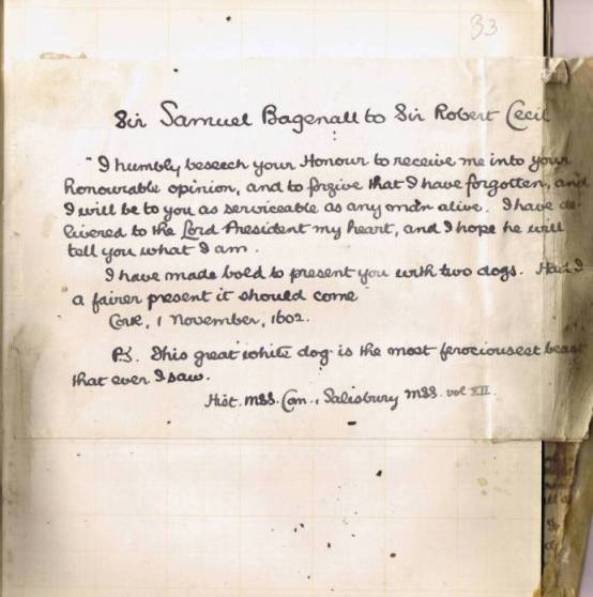 33
Sir Samuel Bagenall to Sir Robert Cecil
"I humbly beseech your Honour to receive me into your
honourable opinion, and to forgive that I have forgotten, and
I will be to you as serviceable as any man alive. I have de-
livered to the Lord President my heart, and I hope he will
tell you what I am.
I have made bold to present you with two dogs. Had I
a fairer present it should come"
Cork, 1 November, 1602.
PS. This great white dog is the most ferociousest beast
that ever I saw.
Hist. MSS. Com., Salisbury MSS. vol XII.